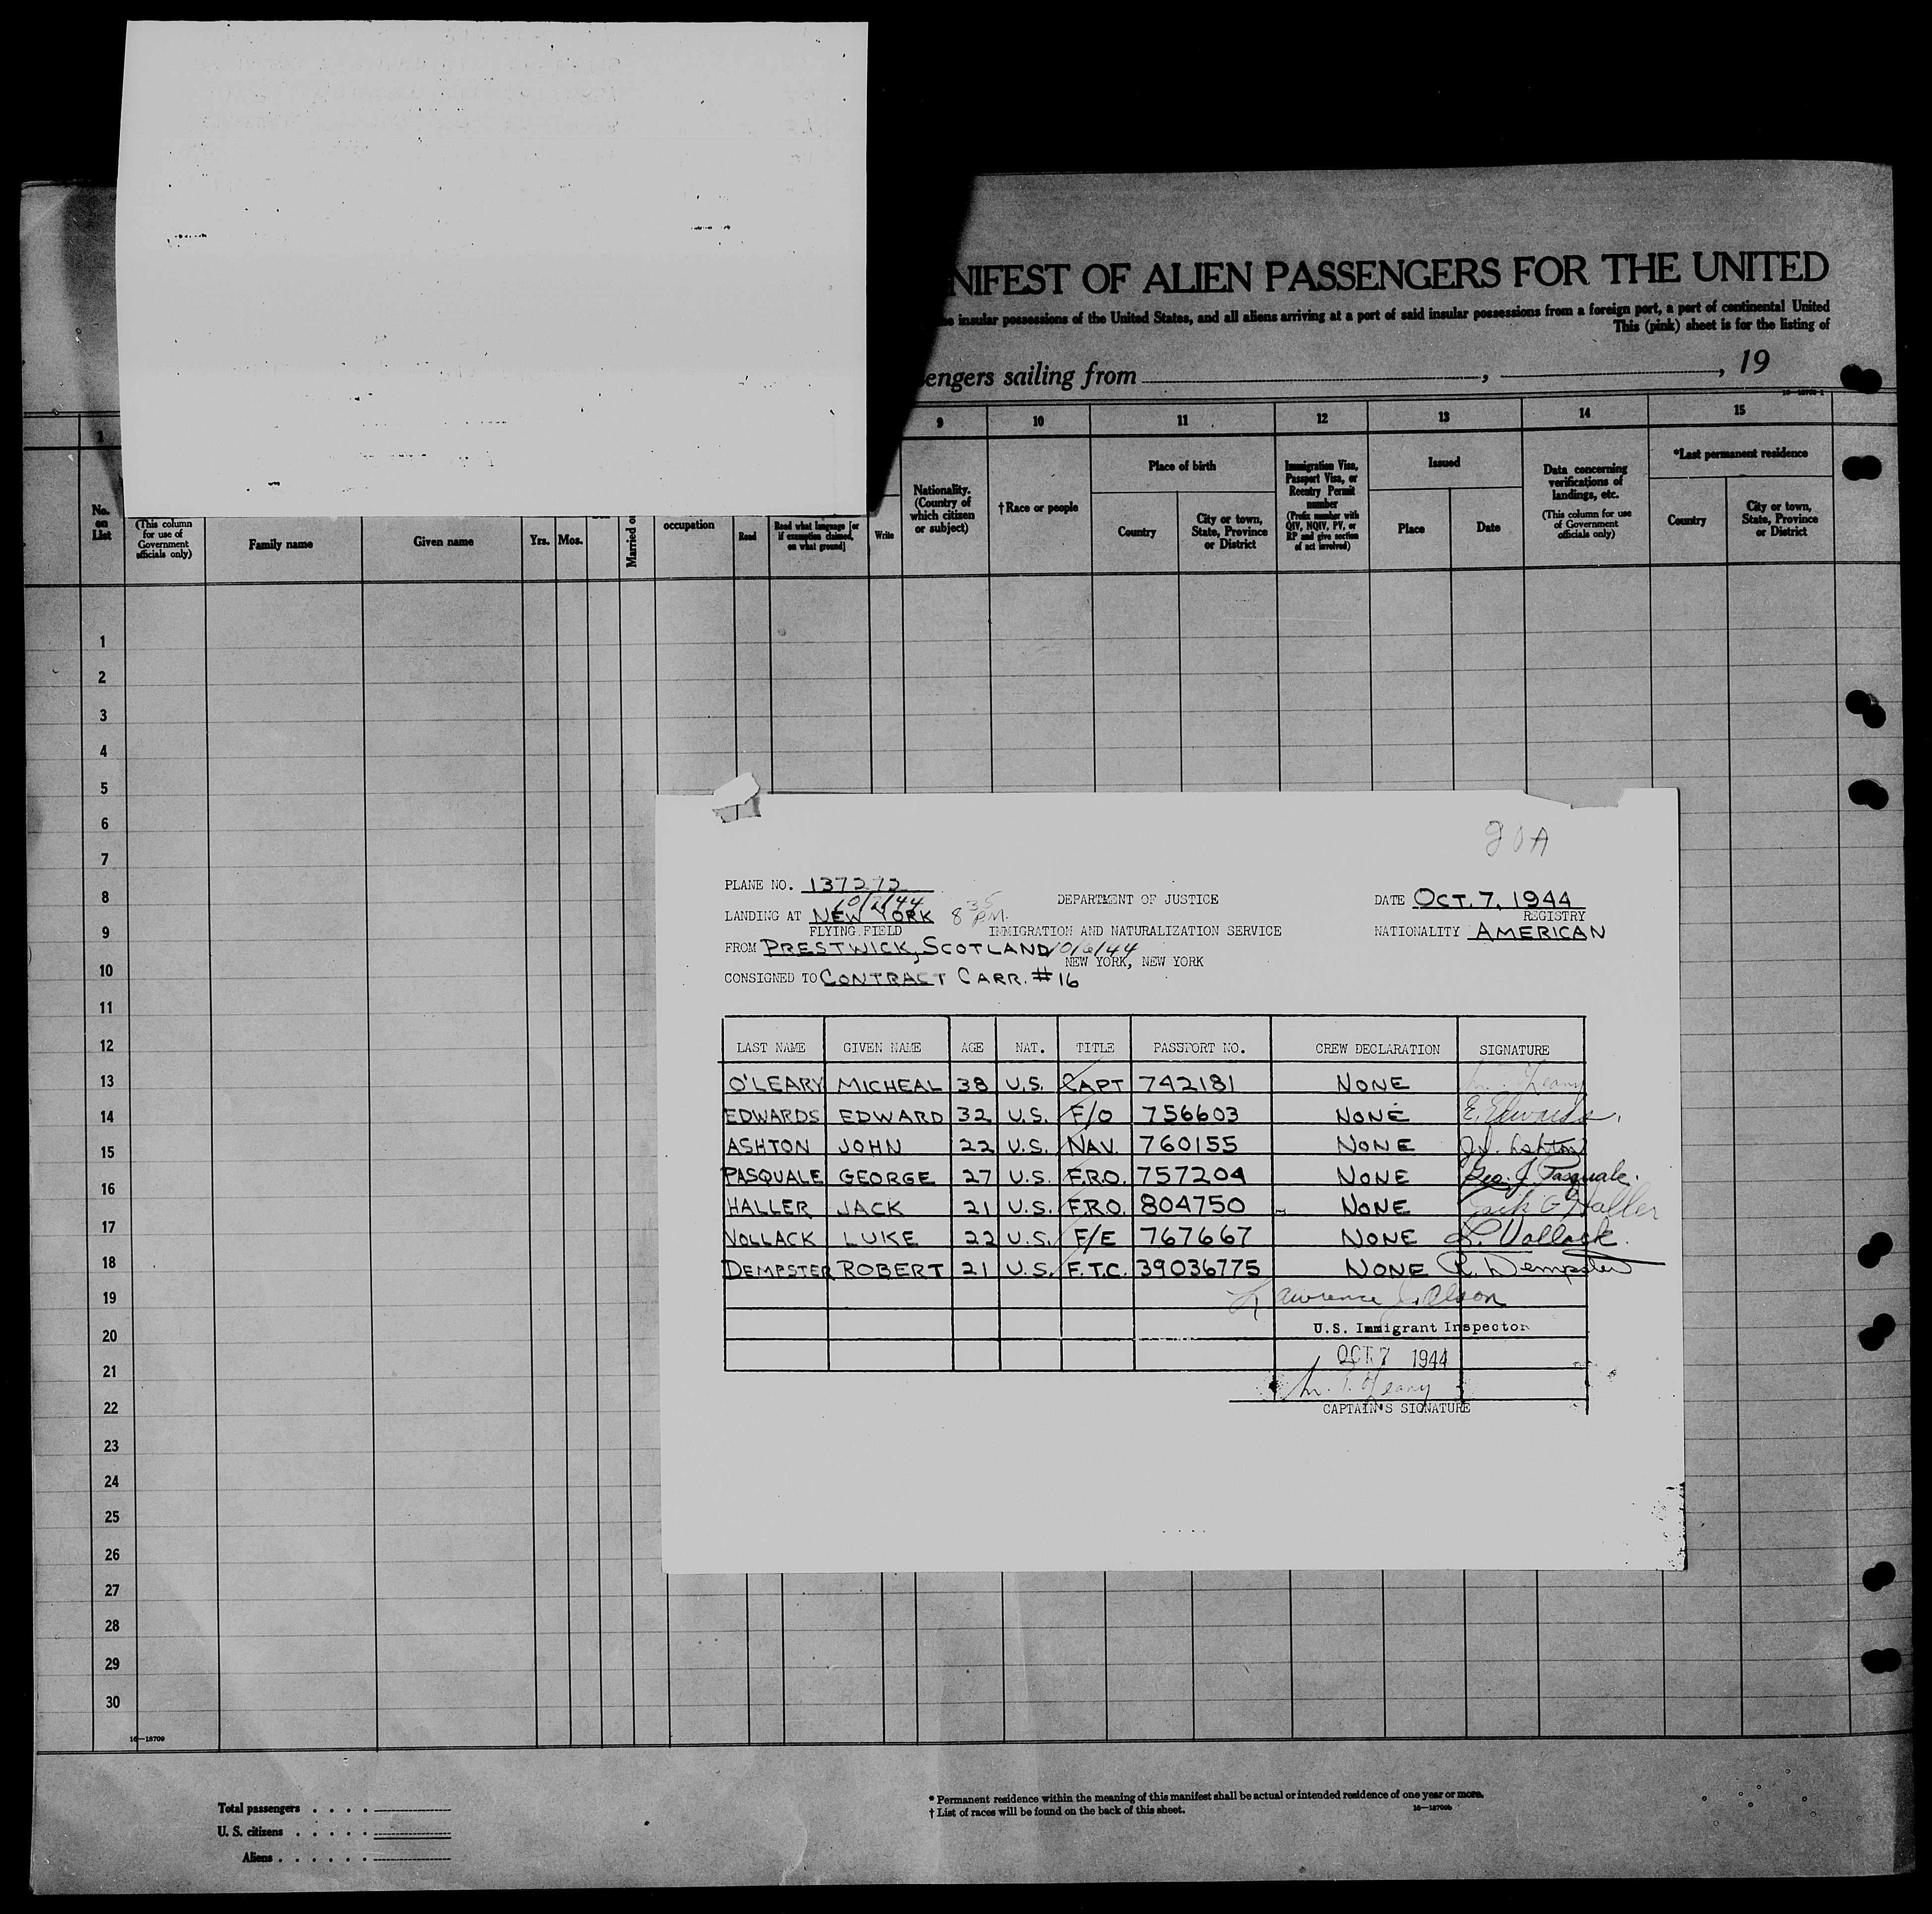 NIFEST OF ALIEN PASSENGERS FOR THE UNITED
insular possessions of the United States, and all aliens arriving at a port of said insular possessions from a foreign port, a port of continental United
This (pink) sheet is for the listing of
engers sailing from , , 19
1 9 10 11 12 13 14 15
No. on List
(This column for use of Government officials only)
Family name
Given name
Yrs. Mos.
Married o
occupation
Read
Read what language [or if exemption claimed, on what ground]
Write
Nationality. (Country of which citizen or subject)
†Race or people
Place of birth
Country
City or town, State, Province or District
Immigration Visa, Passport Visa, or Reentry Permit number
(Prefix number with QIV, NQIV, PV, or RP and give section of act involved)
Issued
Place
Date
Data concerning verifications of landings, etc.
(This column for use of Government officials only)
*Last permanent residence
Country
City or town, State, Province or District
1
2
3
4
5
6
7
8
9
10
11
12
13
14
15
16
17
18
19
20
21
22
23
24
25
26
27
28
29
30
16—18709
80A
PLANE NO. 137272
DEPARTMENT OF JUSTICE
DATE OCT. 7, 1944
LANDING AT NEW YORK 8 35 P.M.
REGISTRY
FLYING FIELD
IMMIGRATION AND NATURALIZATION SERVICE
NATIONALITY AMERICAN
FROM PRESTWICK, SCOTLAND 10/6/44
NEW YORK, NEW YORK
CONSIGNED TO CONTRACT CARR. #16
LAST NAME GIVEN NAME AGE NAT. TITLE PASSPORT NO. CREW DECLARATION SIGNATURE
O'LEARY MICHEAL 38 U.S. CAPT 742181 NONE
EDWARDS EDWARD 32 U.S. F/O 756603 NONE E. Edwards
ASHTON JOHN 22 U.S. NAV. 760155 NONE Ashton
PASQUALE GEORGE 27 U.S. F.R.O. 757204 NONE Geo. J. Pasquale.
HALLER JACK 21 U.S. F.R.O. 804750 NONE Jack G Haller
VOLLACK LUKE 22 U.S. F/E 767667 NONE L. Vollack.
DEMPSTER ROBERT 21 U.S. F.T.C. 39036775 NONE R. Dempster
Lawrence Olson
U.S. Immigrant Inspector
OCT 7 1944
CAPTAIN'S SIGNATURE
Total passengers . . . .
U. S. citizens . . . . .
Aliens . . . . . .
* Permanent residence within the meaning of this manifest shall be actual or intended residence of one year or more.
† List of races will be found on the back of this sheet.